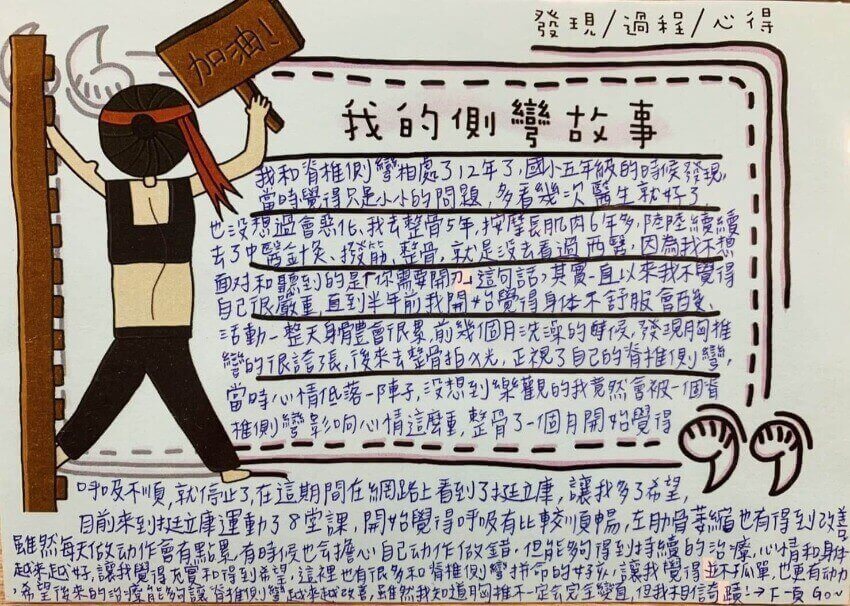 發現/過程/心得
加油!
我的側彎故事
我和脊椎側彎相處了12年了,國小五年級的時候發現,
當時覺得只是小小的問題,多看幾次醫生就好了,
也沒想過會惡化、我去整骨5年,按摩長肌肉6年多,陸陸續續
去了中醫針灸、撥筋、整骨,就是沒去看過西醫,因為我不想
面對和聽到的是「你需要開刀」這句話,其實一直以來我不覺得
自己很嚴重,直到半年前我開始覺得身體不舒服會痠、
活動一整天身體會很累,前幾個月洗澡的時候,發現胸椎
彎的很誇張,後來去整骨拍X光,正視了自己的脊椎側彎,
當時心情低落一陣子,沒想到樂觀的我竟然會被一個脊
椎側彎影响心情這麼重,整骨了一個月開始覺得
呼吸不順,就停止了,在這期間在網路上看到了挺立庫,讓我多了希望,
目前來到挺立庫運動了8堂課,開始覺得呼吸有比較順暢,左肋骨萎縮也有得到改善
雖然每天做動作會有點累,有時候也會擔心自己動作做錯,但能夠得到持續的治療,心情和身体
越來越好,讓我覺得充實和得到希望,這裡也有很多和脊椎側彎拼命的好友,讓我覺得並不孤單,也更有動力
,希望後來的治療能夠讓脊椎側彎越來越改善,雖然我知道胸椎不一定會完全變直,但我相信奇蹟!→下一頁 Go~